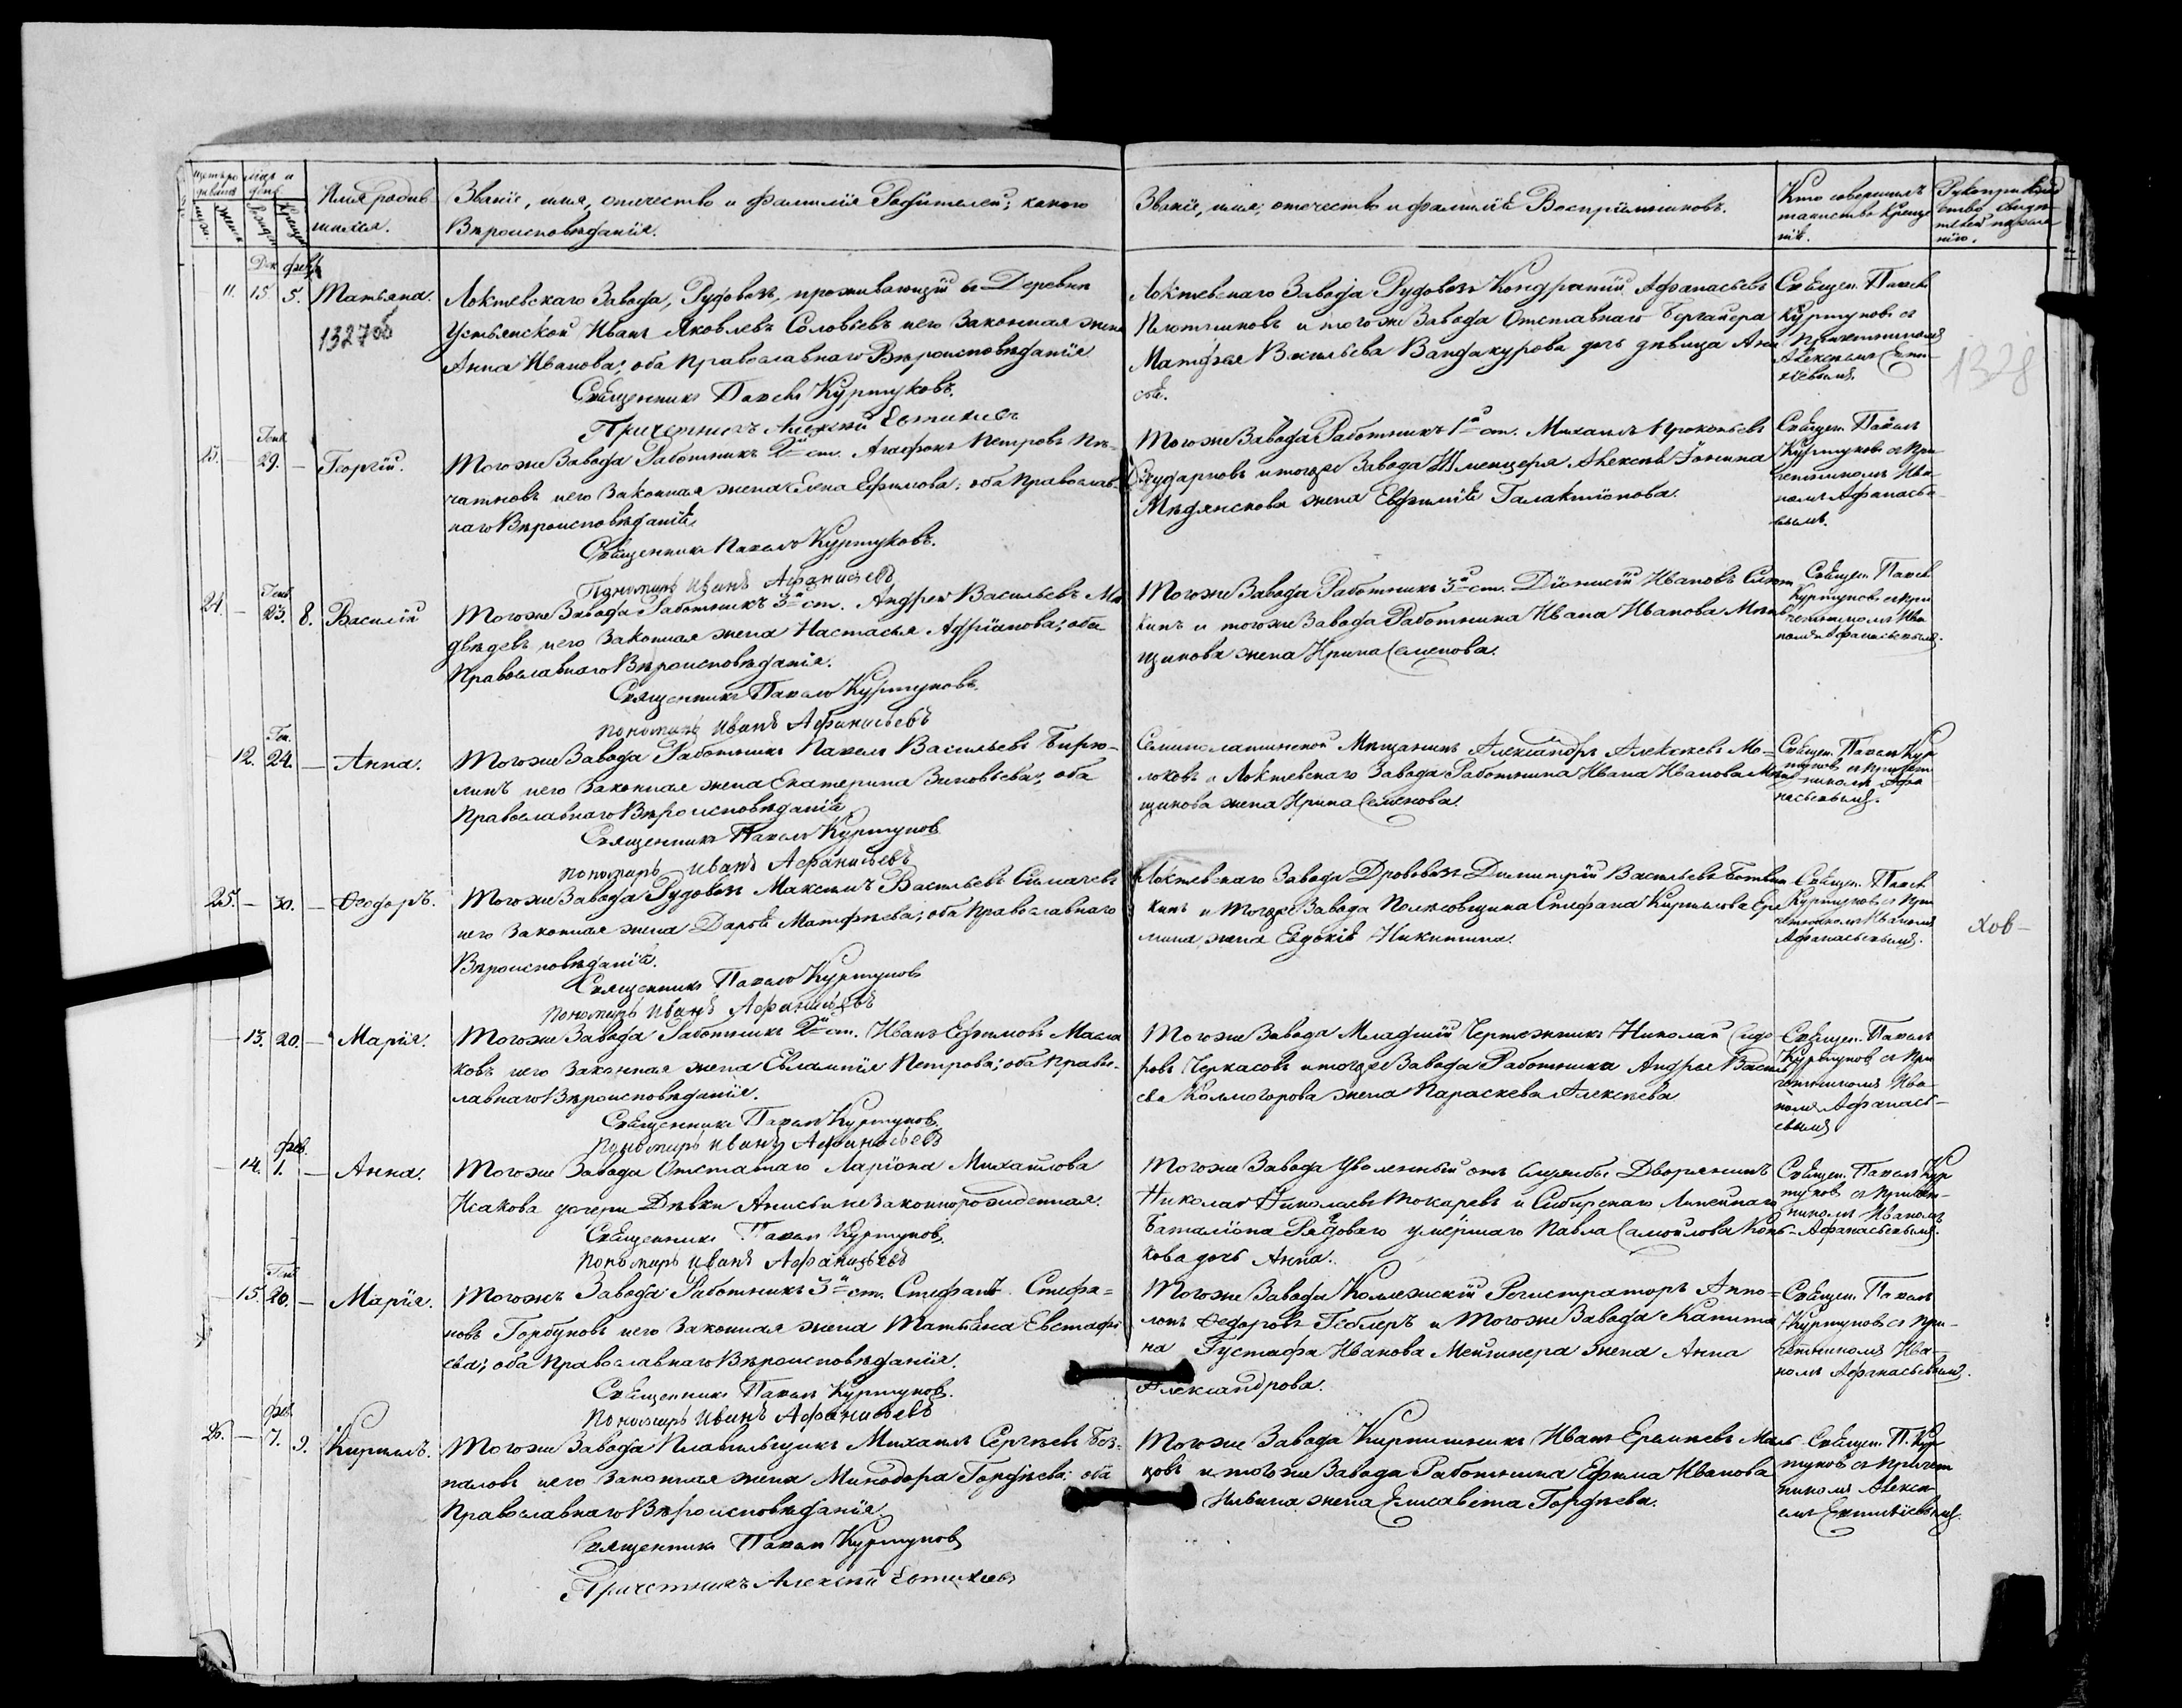 Имя родив
шихся.
Званіе, имя, отечество и фамилія Родителей; какого
Вѣроисповѣданія.
Званіе, имя, отечество и фамилія Воспріимниковъ.
Кто совершилъ
таинство Креще
нія.
Рукоприклад
ство свидѣ
телей
Дек. Февр.
11. 15 5. Татьяна.
1327об
Локтевскаго Завода, Рудовозъ, проживающій въ Деревни
Устьянской Иванъ Яковлевъ Соловьевъ и его Законная жена
Анна Иванова; оба Православнаго Вѣроисповѣданія
Священникъ Павелъ Куртуковъ.
Причетникъ Алексѣй Евтихіевъ
Локтевскаго Завода Рудовозъ Кондратій Афанасьевъ
Плотниковъ и того же Завода Отставнаго Бергайера
Матфея Васильева Вандакурова дочь дѣвица
Священ. Павелъ
Куртуковъ съ
Причетникомъ
Алексѣемъ Евти
хіевымъ.
1328
Генв.
29. — Георгій.
Того же Завода Работникъ 2й ст. Агафонъ Петровъ Пе-
чатновъ и его Законная жена Елена Ефимова; оба Православ-
наго Вѣроисповѣданія
Священникъ Павелъ Куртуковъ.
Пономарь Иванъ Афанасьевъ
Того же Завода Работникъ 1й ст. Михаилъ Прокопьевъ
и того же Завода Шмельцера Алексѣя Іонина
Мѣдянскова жена Евфимія Галактіонова.
Священ. Павелъ
Куртуковъ съ При
четникомъ Ива-
номъ Афанасье-
вымъ.
Генв.
24. — 23. 8. Василій
Того же Завода Работникъ 3й ст. Андрей Васильевъ Ме
двѣдевъ и его Законная жена Настасья Адріанова; оба
Православнаго Вѣроисповѣданія.
Священникъ Павелъ Куртуковъ.
Пономарь Иванъ Афанасьевъ
Того же Завода Работникъ 3й ст. Діонисій Ивановъ
кинъ и того же Завода Работника Ивана Иванова
щикова жена Ирина Семенова.
Священ. Павелъ
Куртуковъ съ При
четникомъ Ива
номъ Афанасьевымъ.
Ген.
12. 24. — Анна.
Того же Завода Работникъ Павелъ Васильевъ Бирю-
линъ и его Законная жена Екатерина Зиновьева; оба
Православнаго Вѣроисповѣданія
Священникъ Павелъ Куртуковъ
Пономарь Иванъ Афанасьевъ
Семиполатинской Мещанинъ Александръ Алексѣевъ Мо-
локовъ и Локтевскаго Завода Работника Ивана Иванова
щикова жена Ирина Семенова.
Священ. Павелъ Кур
туковъ съ Причет
никомъ Афа
насьевымъ.
25. — 30. — Ѳеодоръ.
Того же Завода Рудовозъ Максимъ Васильевъ Симачевъ
и его Законная жена Дарья Матфѣева; оба Православнаго
Вѣроисповѣданія.
Священникъ Павелъ Куртуковъ
Пономарь Иванъ Афанасьевъ
Локтевскаго Завода Дрововозъ Димитрій Васильевъ Ботвин
кинъ и того же Завода Стефана Кирилова Ере
мина жена Евдокія Никитина.
Священ. Павелъ
Куртуковъ съ При
четникомъ Иваномъ
Афанасьевымъ.
хов-
— 13. 20. — Марія.
Того же Завода Работникъ 2й ст. Иванъ Ефимовъ Масла
ковъ и его Законная жена Евлампія Петрова; оба Правос-
лавнаго Вѣроисповѣданія.
Священникъ Павелъ Куртуковъ
Пономарь Иванъ Афанасьевъ
Того же Завода Младшій Чертежникъ Николай Сидо
ровъ Черкасовъ и того же Завода Работника Андрея Василь
ева Колмогорова жена Параскева Алексѣева
Священ. Павелъ
Куртуковъ съ При
четникомъ Ива-
номъ Афанась-
евымъ
Фев.
— 14. 1. — Анна.
Того же Завода Отставнаго Ларіона Михайлова
Исакова дочери Дѣвки Анисьи незаконнорожденная.
Священникъ Павелъ Куртуковъ.
Пономарь Иванъ Афанасьевъ
Того же Завода Уволенный отъ службы Дворянинъ
Николай Николаевъ Токаревъ и Сибирскаго Линейнаго
Баталіона Рядоваго умершаго Павла Самойлова Коны-
кова дочь Анна.
Священ. Павелъ Кур
туковъ съ Причет-
никомъ Иваномъ
Афанасьевымъ.
Генв.
— 15. 20. — Марія.
Того жъ Завода Работникъ 3й ст. Стефанъ Стефа-
новъ Горбуновъ и его Законная жена Татьяна Евстафь
ева; оба Православнаго Вѣроисповѣданія.
Священникъ Павелъ Куртуковъ.
Пономарь Иванъ Афанасьевъ
Того же Завода Коллежскій Регистраторъ Аппо-
лонъ Ѳедоровъ Геблеръ и Того же Завода Капита
на Густафа Иванова Мейнцера жена Анна
Александрова.
Священ. Павелъ
Куртуковъ съ При-
четникомъ Ива-
номъ Афанасьевымъ.
Фев.
26. — 7. 9. Кирилъ.
Того же Завода Плавильщикъ Михаилъ Сергѣевъ Без-
паловъ и его Законная жена Минодора Гордѣева; оба
Православнаго Вѣроисповѣданія
Священникъ Павелъ Куртуковъ
Причетникъ Алексѣй Евтихіевъ
Того же Завода Кирпишникъ Иванъ Ермиевъ Маль
цовъ и того же Завода Работника Ефима Иванова
Ильина жена Елисавета Гордѣева.
Священ. П. Кур
туковъ съ Причет
никомъ Алексѣ-
емъ Евтихіевымъ.